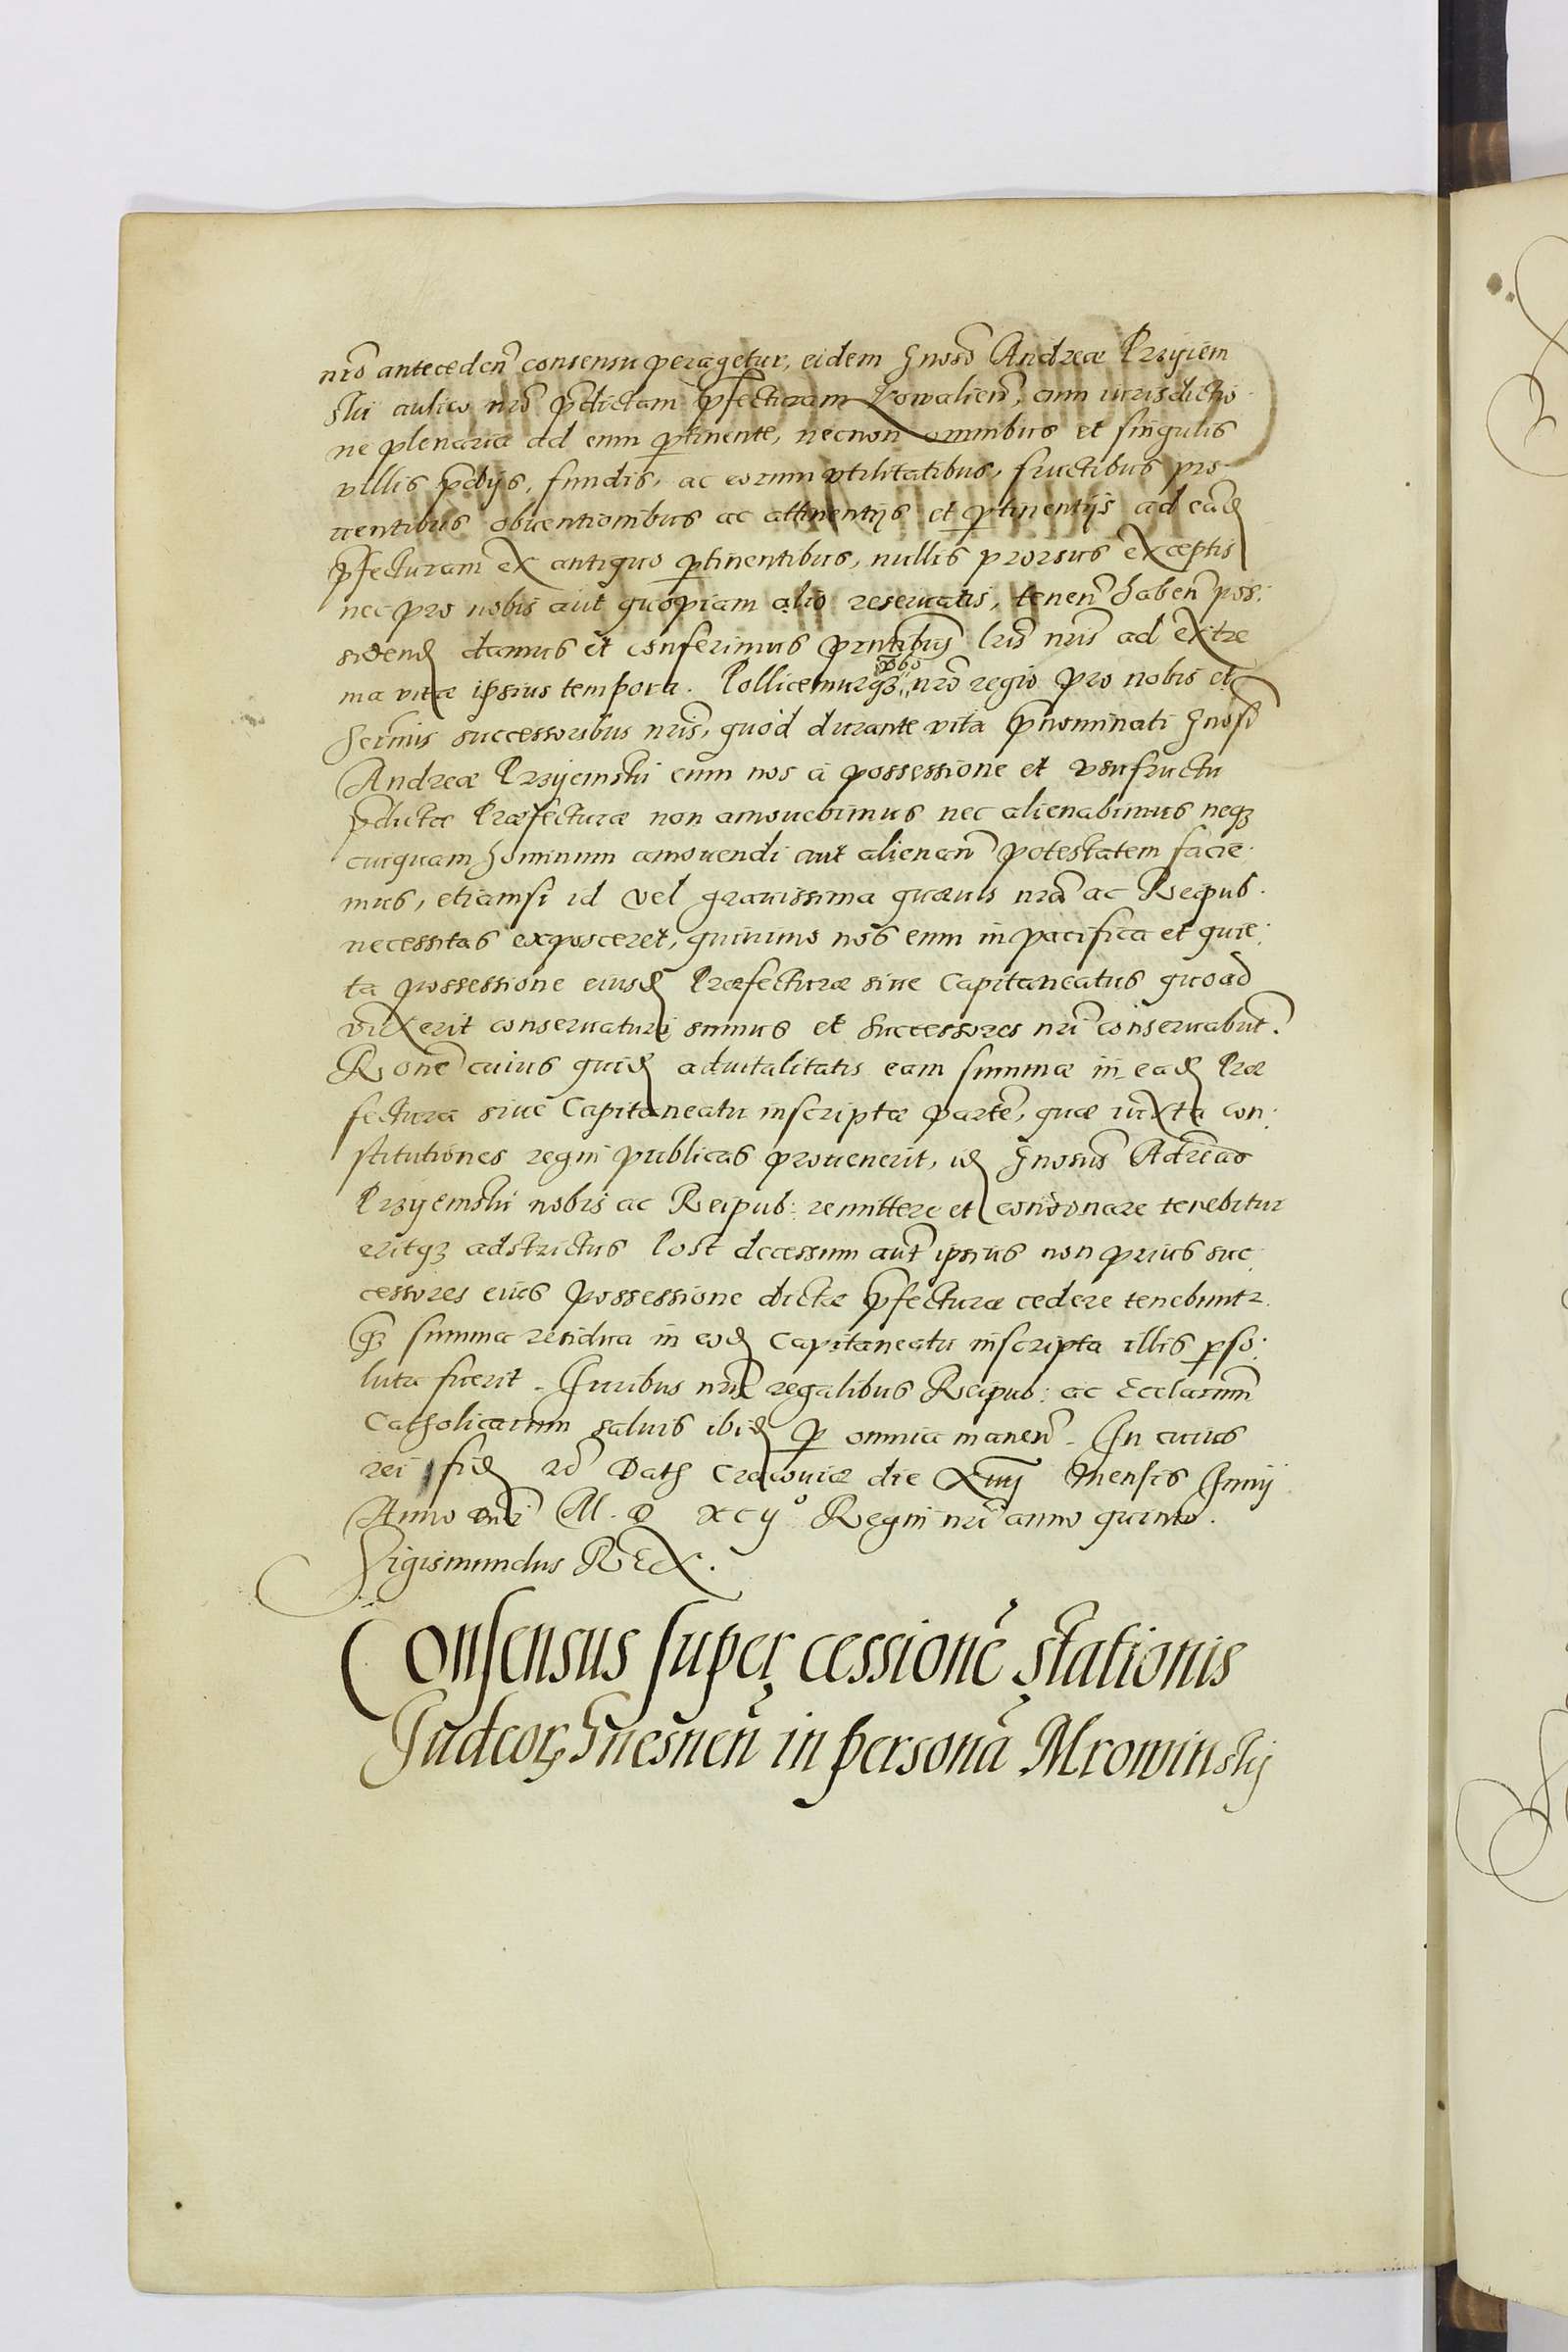 nrō antecedeñ consensu peragetur, eidem Gnosō Andreæ Przyiem
ski aulico nrō p̄dictam p̄fecturam Kowalieñ, cum iurisdictio
ne plenaria ad eum ꝑtinente, necnon omnibus et singulis
villis p̄dijs, fundis, ac eorum vtilitatibus, fructibus pro
uentibus obuentionibus ac attinentijs et ꝑtinentijs ad eãd
p̄fecturam ex antiquo ꝑtinentibus, nullis prorsus exceptis
nec pro nobis aut quopiam alio reseruatis, teneñ habeñ pos:
sidend damus et conferimus pn̄tibus lr̄is nr̄is ad extre
ma vitæ ipsius tempora. Pollicemurq3 vbo nrō regio pro nobis et
Serm̄is successoribus nr̄is, quod durante vita p̄nominati Gnosi
Andreæ Przyiemski eum nos à possessione et vsufructu
p̄dictæ Præfecturæ non amouebimus nec alienabimus neq3
cuiquam hominum amouendi aut alienañ potestatem facie:
mus, etiamsi id vel grauissima quæuis nr̄a ac Reipub.
necessitas exposceret, quinimo nos eum in pacifica et quie:
ta possessione eiusd Præfecturæ siue Capitaneatus quoad
vixerit conseruaturi sumus et Successores nr̄i conseruabūt.
Rōne cuius quid aduitalitatis eam summæ in ead Præ
fectura siue Capitaneatu inscriptæ partē, quæ iuxta con:
stitutiones regni publicas prouenerit, id Gnosus Andreas
Przyiemski nobis ac Reipub: remittere et condonare tenebitur
eritq3 adstrictus Post decessum aut̄ ipsius non prius suc
cessores eius possessione dictæ p̄fecturæ cedere tenebuntr
q3 summa residua in eod Capitaneatu inscripta illis ꝑso:
luta fuerit. Iuribus nr̄is regalibus Reipub: ac Eccl̄arum
Catholicarum saluis ibid ꝑ omnia maneñ. In cuius
rei fid r̄o Dat Cracouiæ die Xiiij Mensis Iunij
Anno dn̄i M. D XCij° Regni nr̄i anno quinto.
Sigismundus REX.
Consensus super cessionē stationis
Iudeoꝝ Gnesneñ in personā Mrowinskij